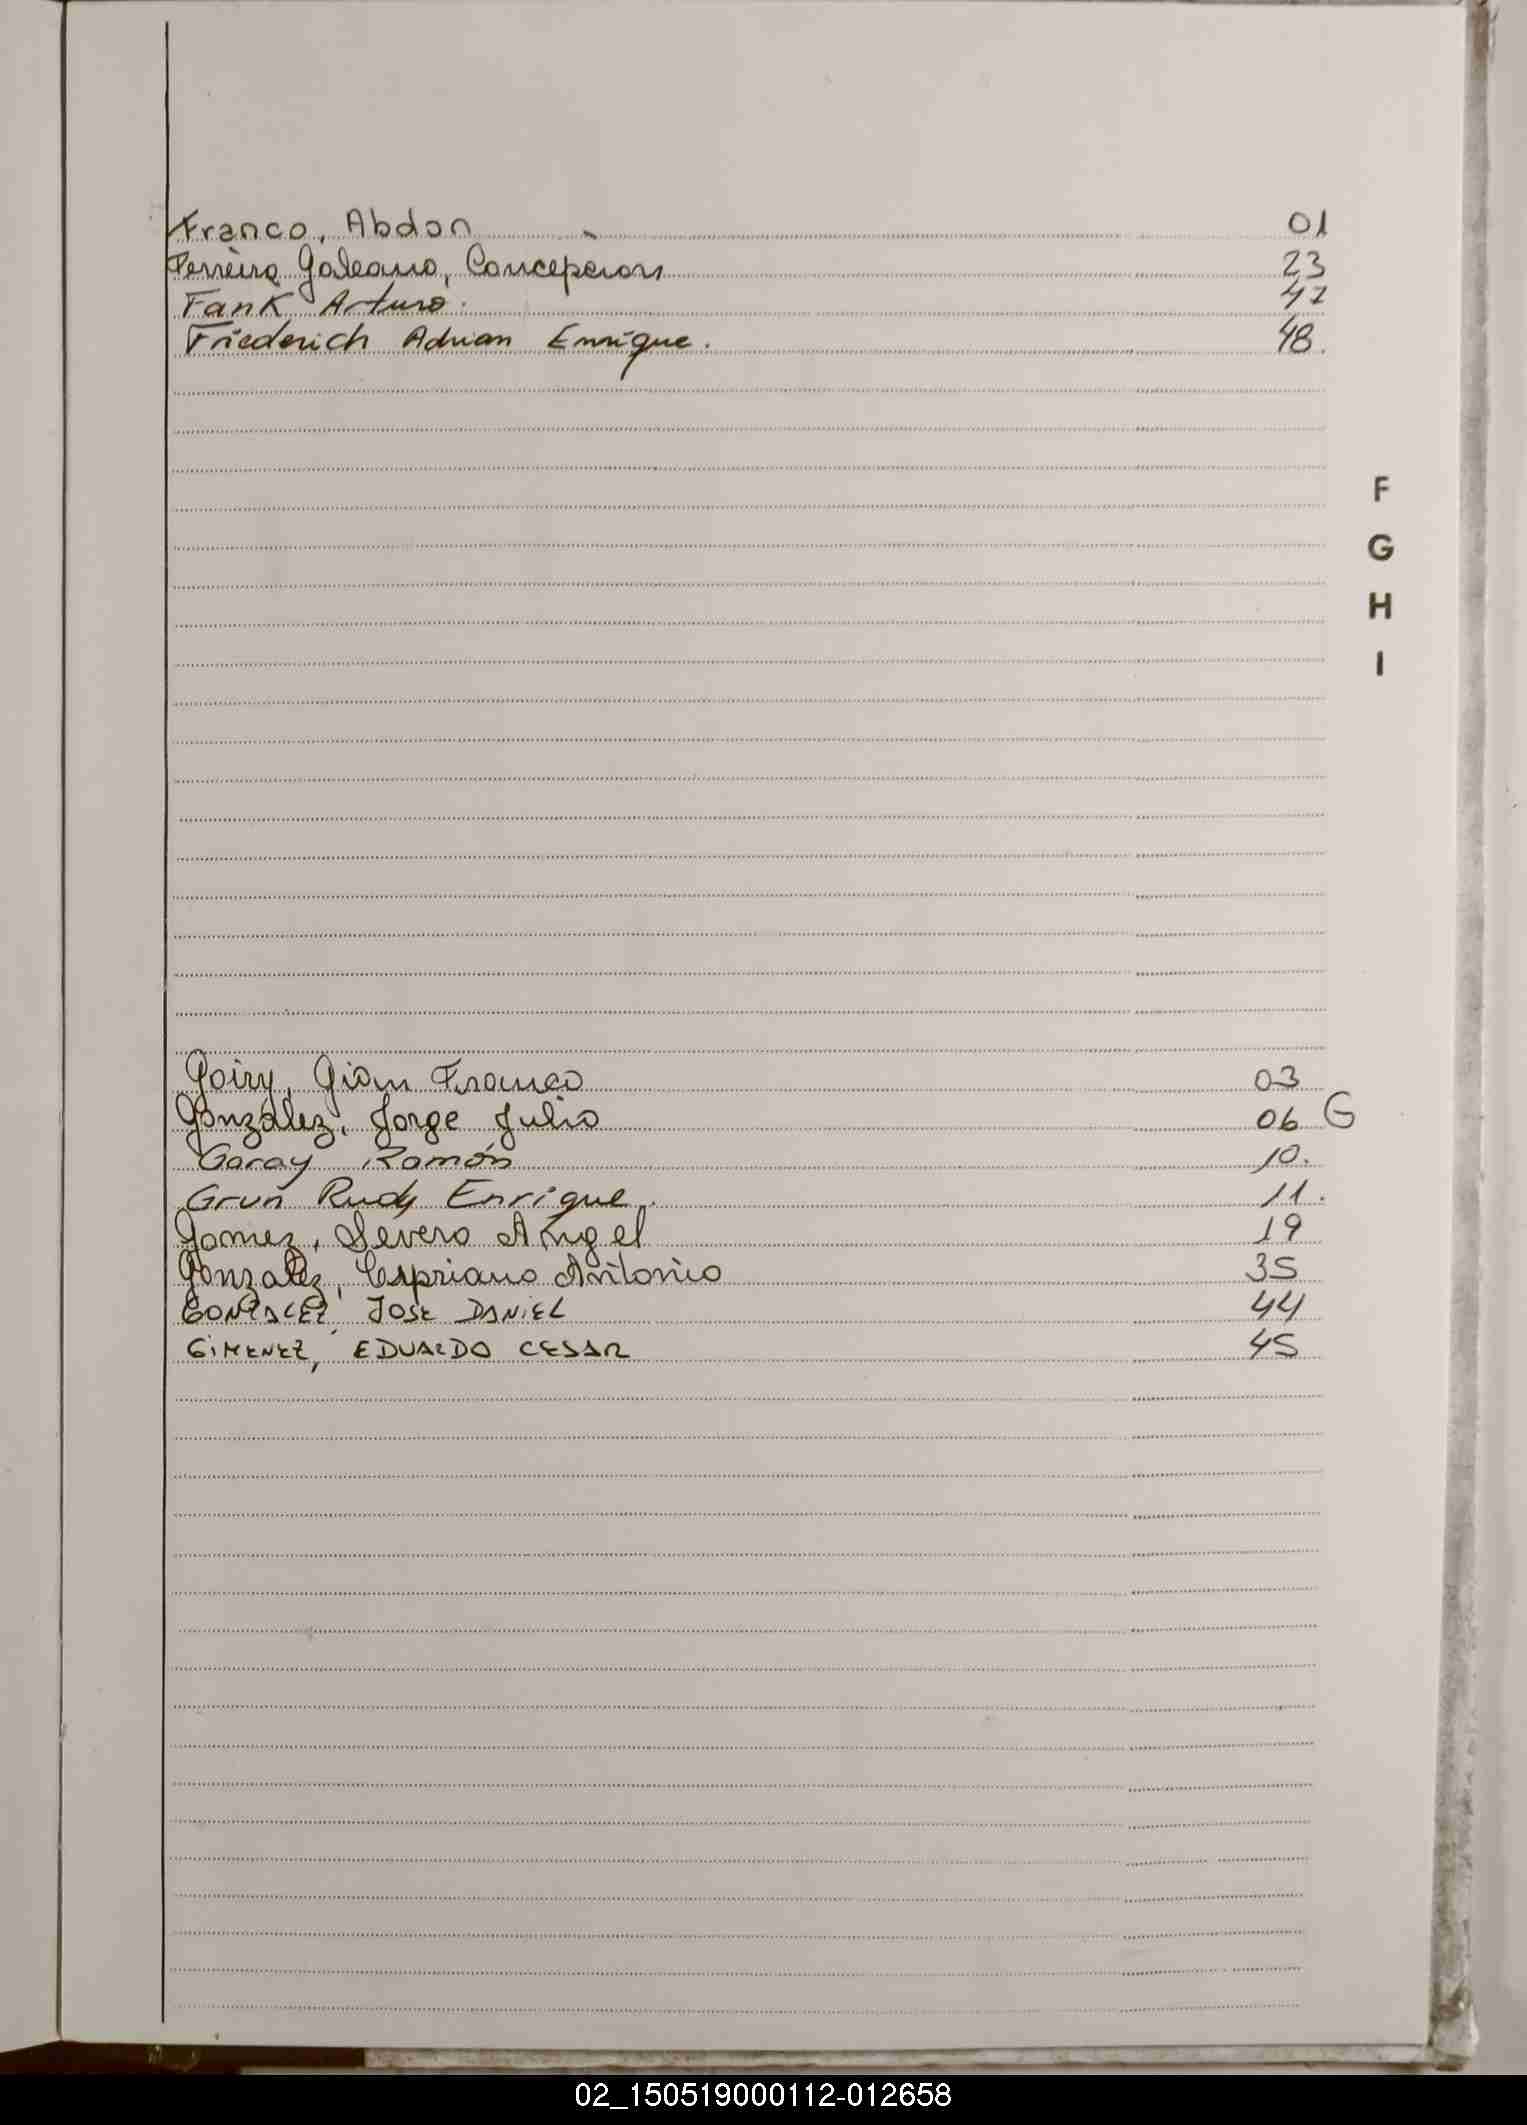 Franco, Abdon 01
Ferreira Galeano, Concepcion 23
Fank Arturo. 47
Friederich Adrian Enrique. 48.
F
G
H
I
Goiry, Gian Franco 03
González, Jorge Julio 06 G
Garay Ramón 10.
Grun Rudy Enrique. 11.
Gomez, Severo Angel 19
Gonzalez, Cipriano Antonio 35
GONZALEZ, JOSE DANIEL 44
GIMENEZ, EDUARDO CESAR 45
02_150519000112-012658